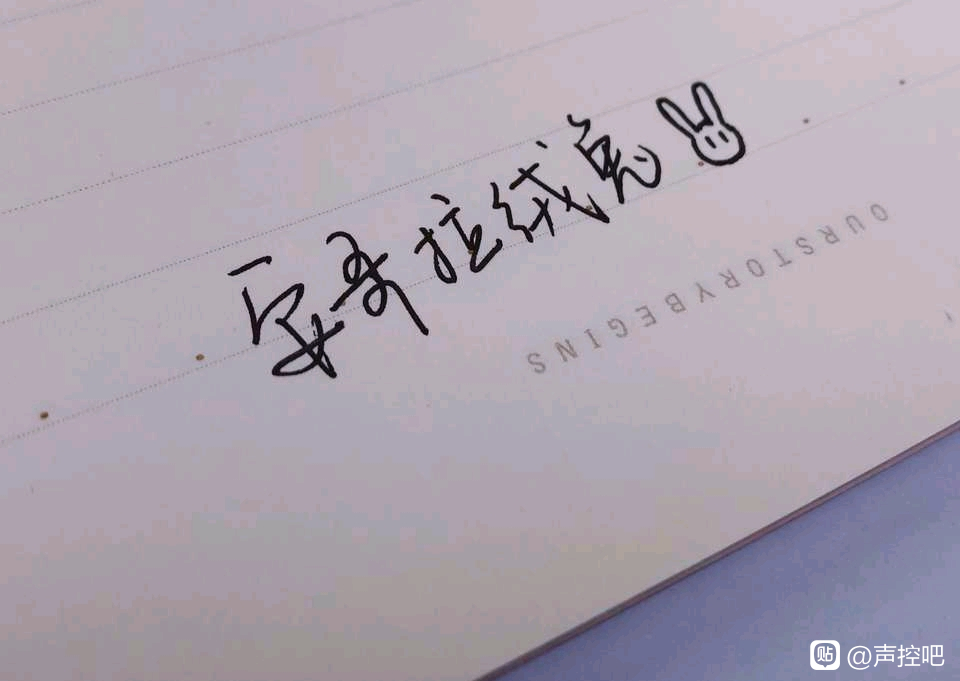 安哥拉绒兔
OURSTORYBEGINS
贴 @声控吧